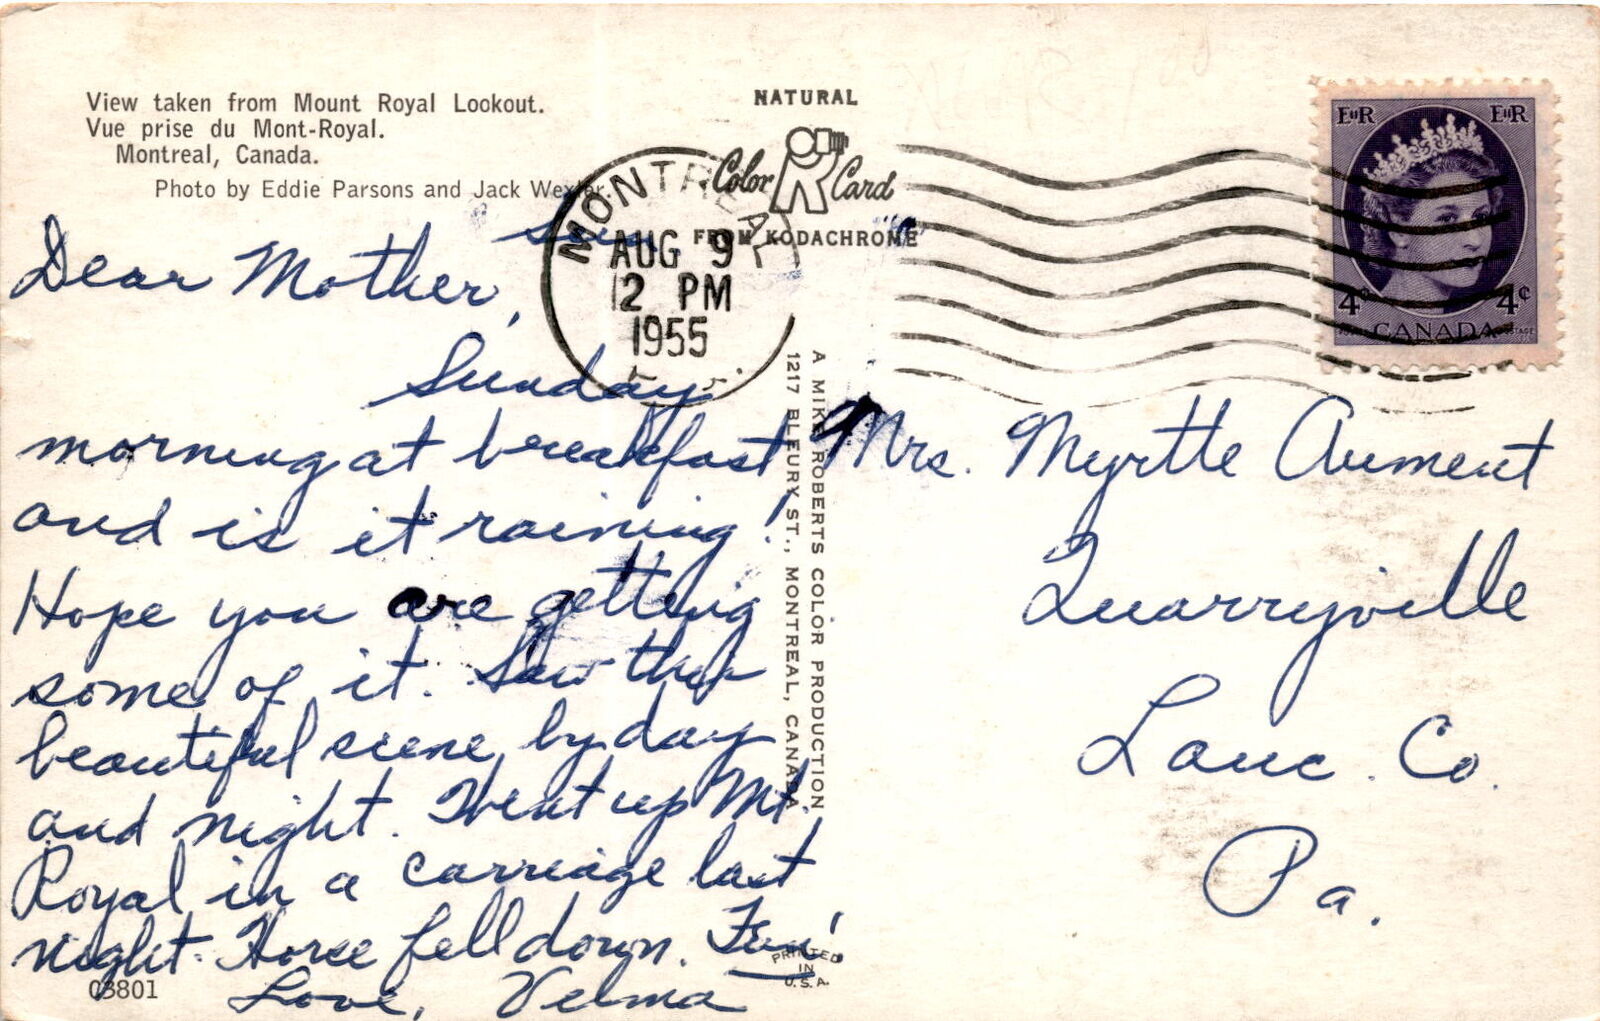 View taken from Mount Royal Lookout.
Vue prise du Mont-Royal.
Montreal, Canada.
Photo by Eddie Parsons and Jack Wexler.
NATURAL
Color Card
FROM KODACHROME
MONTREAL
AUG 9
12 PM
1955
EIIR EIIR
4¢ 4¢
CANADA
POSTAGE
Dear Mother,
Sunday
morning at breakfast
and is it raining!
Hope you are getting
some of it. Saw this
beautiful scene by day
and night. Went up Mt.
Royal in a carriage last
night. Horse fell down. Fun!
Love, Velma
03801
A MIKE ROBERTS COLOR PRODUCTION
1217 BLEURY ST., MONTREAL, CANADA
Mrs. Myrtle Aument
Quarryville
Lanc. Co.
Pa.
PRINTED
IN
U.S.A.